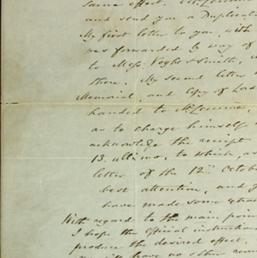 same effect.
and send you a Duplicate
My first letter to you, with
was forwarded by way of
to Mess. Voght & Smith,
then. My second letter
Memorial, and Copy of
handed to
as to charge himself
acknowledge the receipt
13. ultimo, to which, as
letter of the 12th October
best attention, and
have made some what
With regard to the main poin
I hope the official instruction
produce the desired effect.
have no other